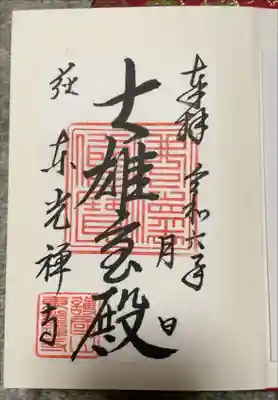 奉拝 令和六年 月 日
大雄宝殿
萩 東光禅寺